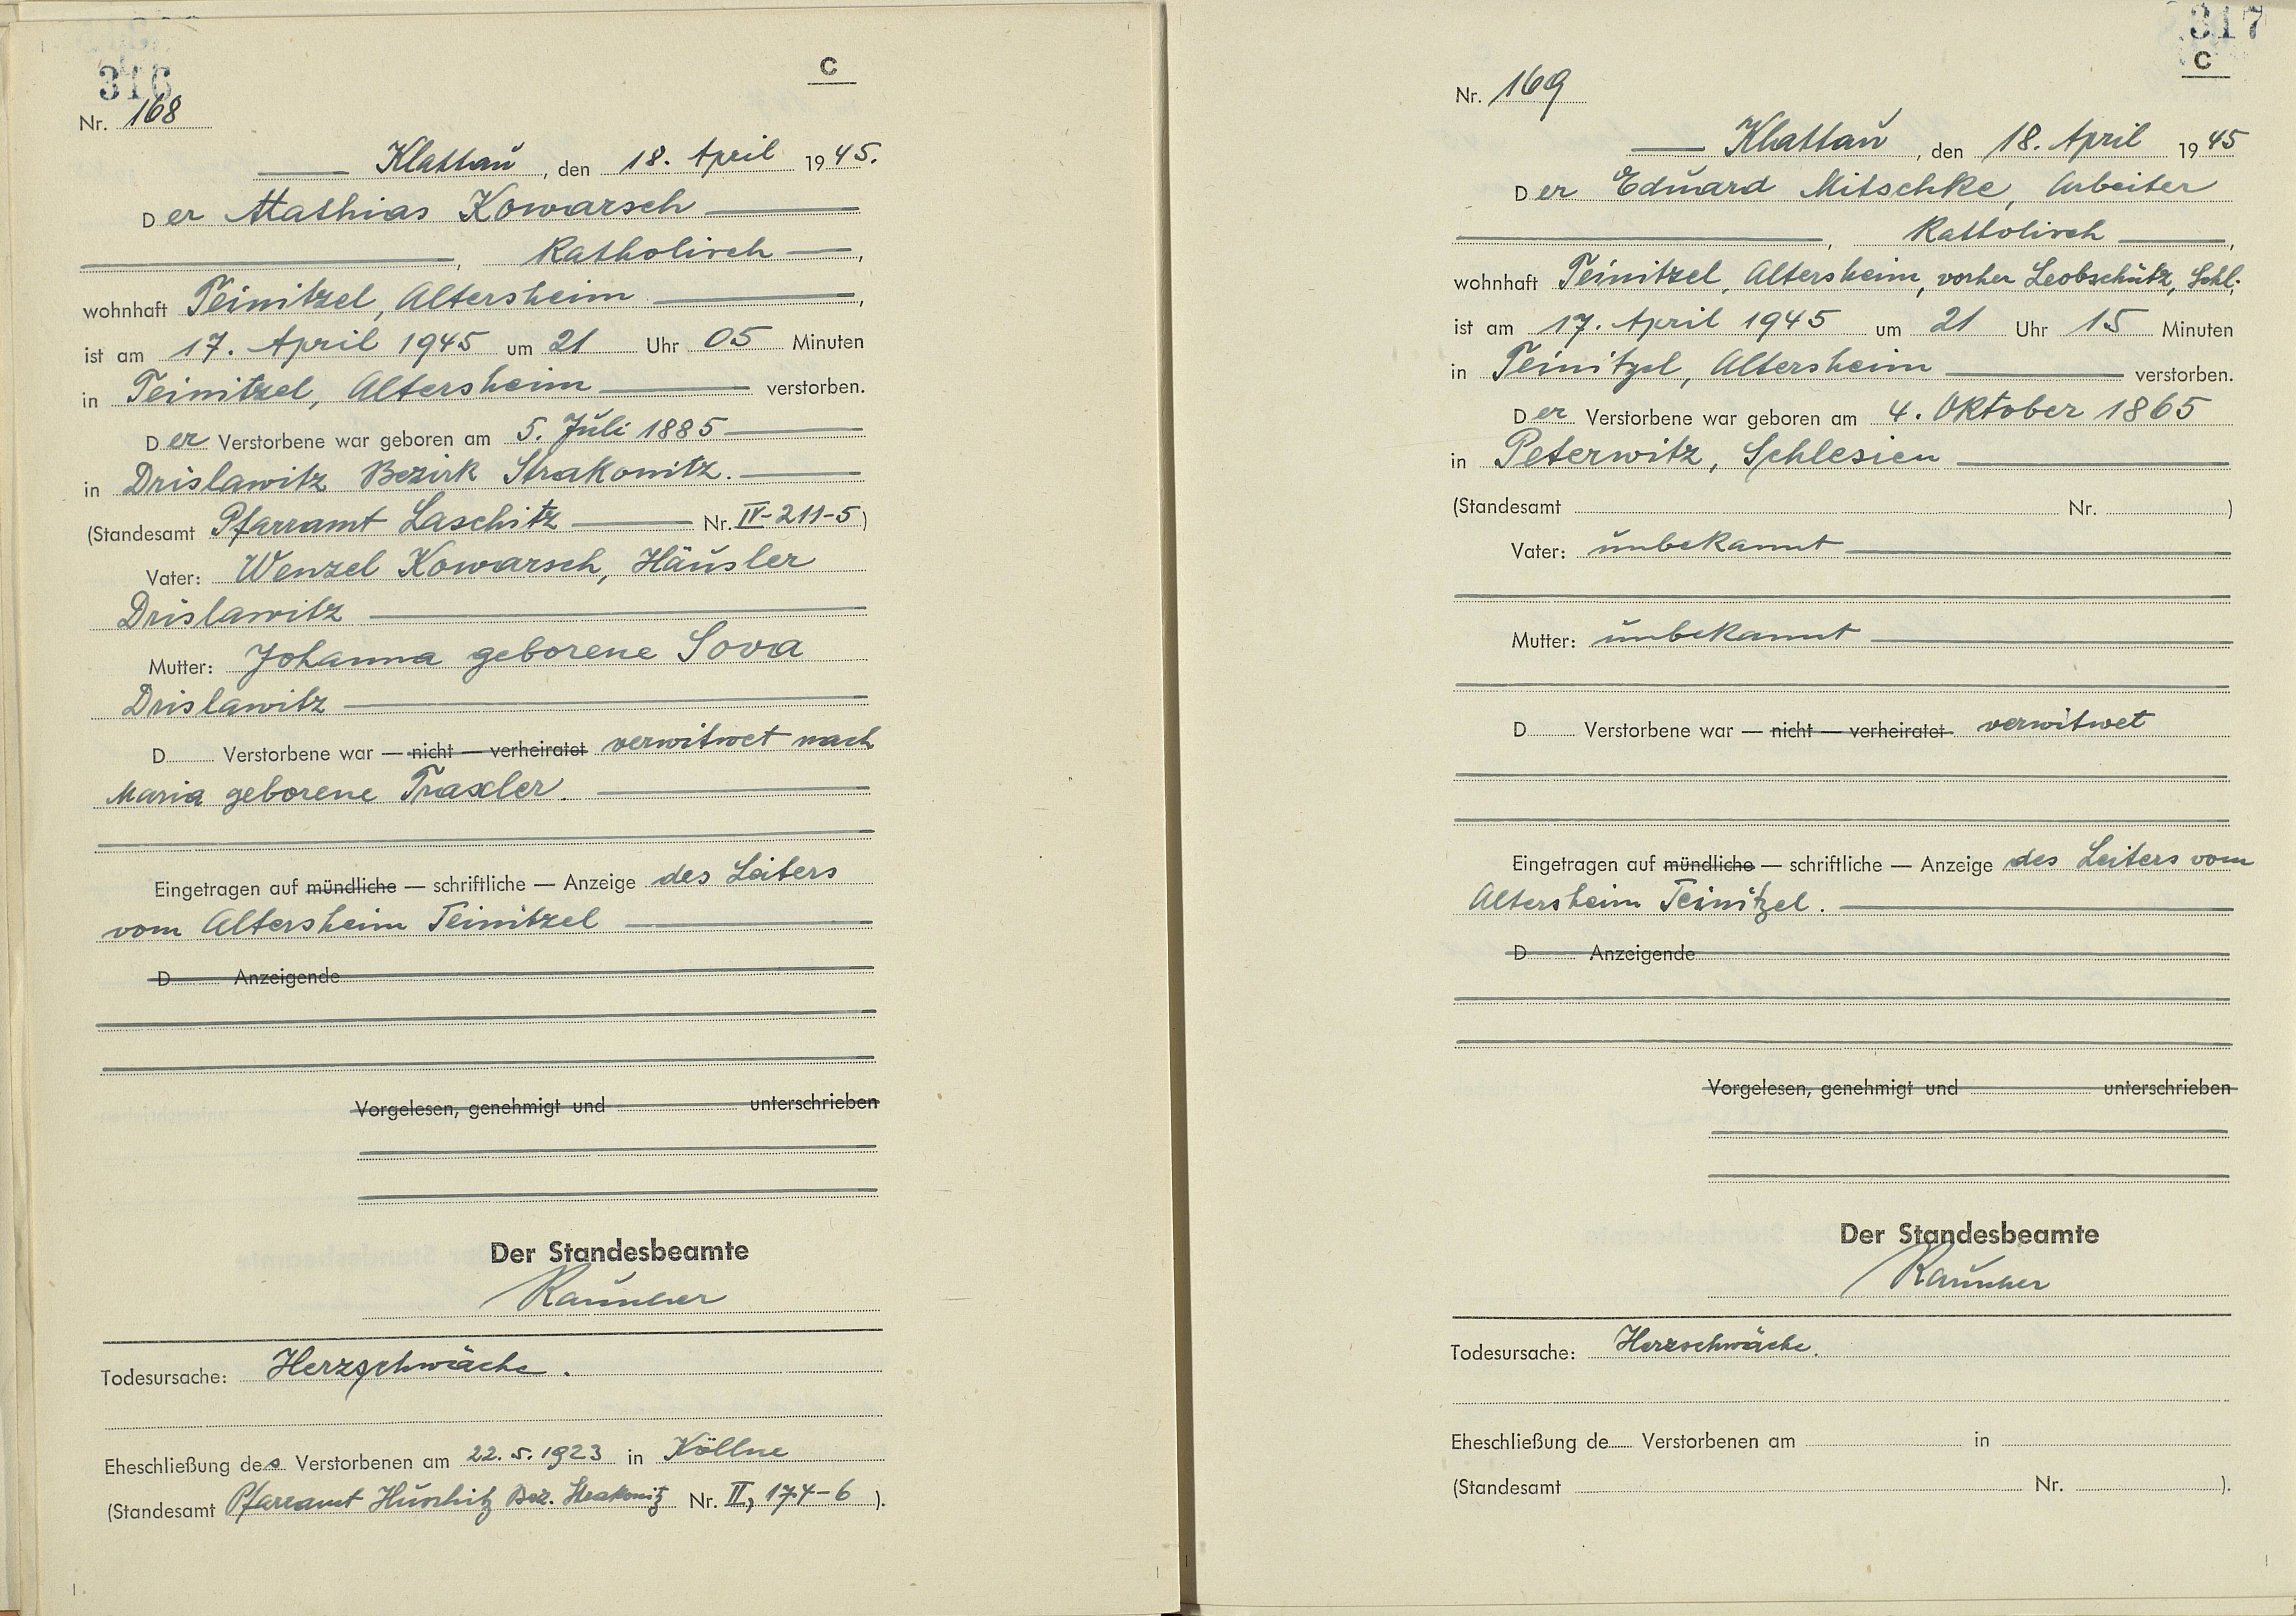 316
C
Nr. 168
Klattau, den 18. April 1945.
Der Mathias Kowarsch
, Katholisch,
wohnhaft Teinitzel, Altersheim,
ist am 17. April 1945 um 21 Uhr 05 Minuten
in Teinitzel, Altersheim verstorben.
Der Verstorbene war geboren am 5. Juli 1885
in Drislawitz Bezirk Strakonitz.
(Standesamt Pfarramt Laschitz Nr. IV-211-5)
Vater: Wenzel Kowarsch, Häusler
Drislawitz
Mutter: Johanna geborene Sova
Drislawitz
D Verstorbene war — nicht — verheiratet verwitwet nach
Maria geborene Traxler.
Eingetragen auf mündliche — schriftliche — Anzeige des Leiters
vom Altersheim Teinitzel
D Anzeigende
Vorgelesen, genehmigt und unterschrieben
Der Standesbeamte
Todesursache: Herzschwäche.
Eheschließung des Verstorbenen am 22.5.1923 in Köllne
(Standesamt Pfarramt Huschitz Bez. Strakonitz Nr. II, 174-6).
317
C
Nr. 169
Klattau, den 18. April 1945
Der Eduard Mitschke, Arbeiter
, Katholisch,
wohnhaft Teinitzel, Altersheim, vorher Leobschütz, Schl.
ist am 17. April 1945 um 21 Uhr 15 Minuten
in Teinitzel, Altersheim verstorben.
Der Verstorbene war geboren am 4. Oktober 1865
in Peterwitz, Schlesien
(Standesamt Nr. )
Vater: unbekannt
Mutter: unbekannt
D Verstorbene war — nicht — verheiratet verwitwet
Eingetragen auf mündliche — schriftliche — Anzeige des Leiters vom
Altersheim Teinitzel.
D Anzeigende
Vorgelesen, genehmigt und unterschrieben
Der Standesbeamte
Todesursache: Herzschwäche.
Eheschließung de Verstorbenen am in
(Standesamt Nr. ).